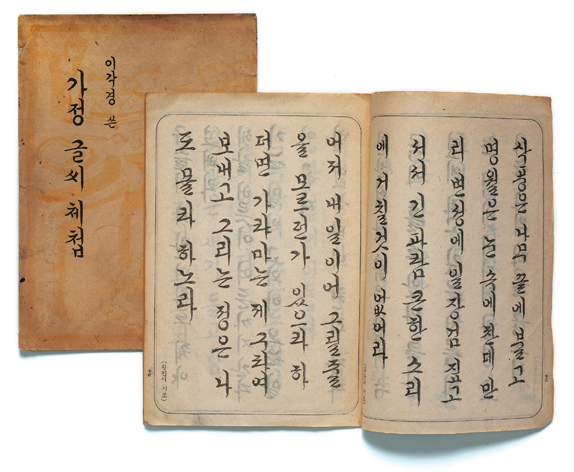 이각경 쓴
가정 글씨 체첩
삭풍은 나무 끝에 불고
명월은 눈 속에 찬데 만
리 변성에 일장검 짚고
서서 긴 파람 큰 한 소리
에 거칠것이 없어라
어저 내 일이여 그릴 줄
을 모르던가 있으라 하
더면 가랴마는 제 구타여
보내고 그리는 정은 나
도 몰라 하노라
(황진이 시조)